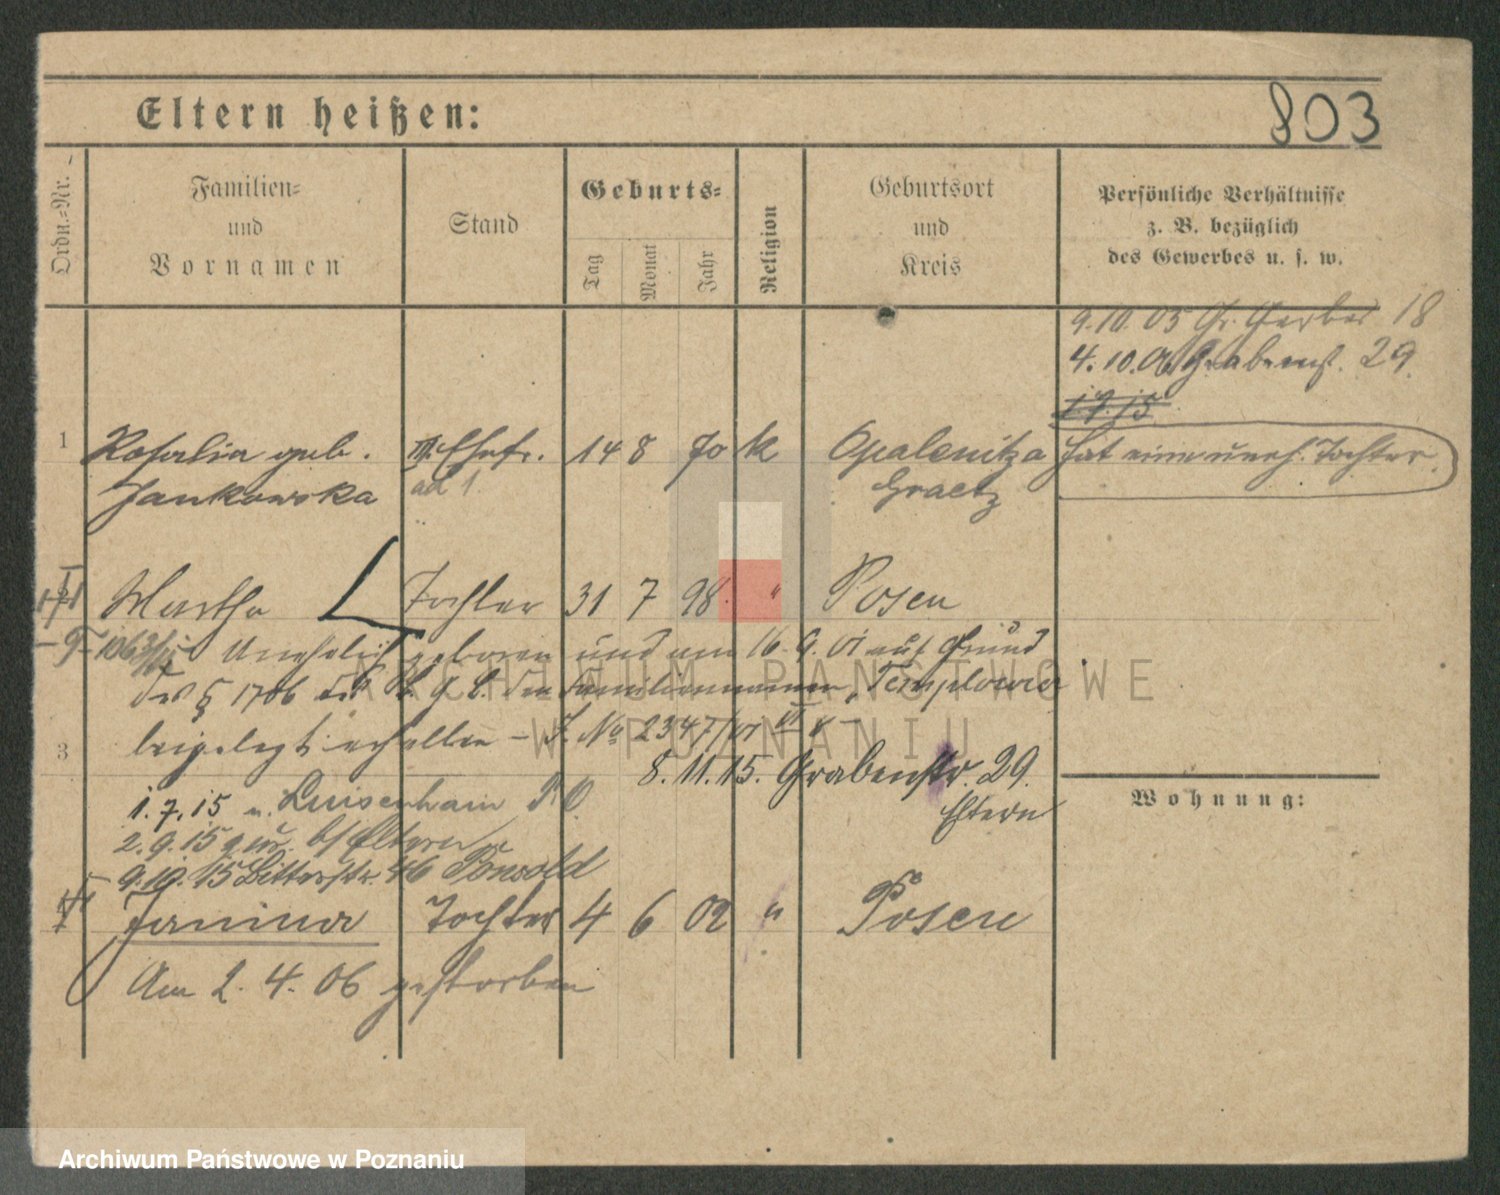 Eltern heißen:
803
Ordn.-Nr.
Familien-
und
Vornamen
Stand
Geburts-
Tag
Monat
Jahr
Religion
Geburtsort
und
Kreis
Persönliche Verhältnisse
z. B. bezüglich
des Gewerbes u. s. w.
9.10.05 Gr. Gerber 18
4.10.06 Grabenst. 29.
1 Rosalia geb. Ehefr. 14 8 70 k Opalenitza hat eine uneh. Tochter.
Jankowska ad 1. Graetz
Martha Tochter 31 7 98. " Posen
Unehelich geboren und am 16.9.01 auf Grund
des § 1706 des B. G. B. den Familiennamen
beigelegt erhalten – J. No 2347/01
3
8.11.15. Grabenstr. 29.
Eltern
1.7.15 n. Luisenhain P. O.
2.9.15 zur. b/ Eltern
9.10.15 Bitterstr. 46
Janina Tochter 4 6 02 " Posen
Am 2.4.06 gestorben
Wohnung:
ARCHIWUM PAŃSTWOWE
W POZNANIU
Archiwum Państwowe w Poznaniu